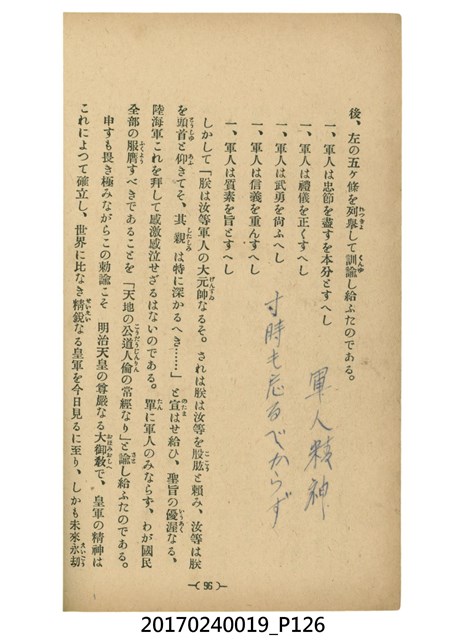 後、左の五ヶ條を列擧して訓諭し給ふたのである。
一、軍人は忠節を盡すを本分とすへし
一、軍人は禮儀を正くすへし
一、軍人は武勇を尙ふへし
一、軍人は信義を重んすへし
一、軍人は質素を旨とすへし
軍人精神
寸時も忘るべからず
しかして「朕は汝等軍人の大元帥なるそ。されは朕は汝等を股肱と賴み、汝等は朕
を頭首と仰きてそ、其親は特に深かるへき……」と宣はせ給ひ、聖旨の優渥なる、
陸海軍これを拜して感激感泣せざるはないのである。單に軍人のみならず、わが國民
全部の服膺すべきであることを「天地の公道人倫の常經なり」と諭し給ふたのである。
申すも畏き極みながらこの勅諭こそ　明治天皇の尊嚴なる大御敎で、皇軍の精神は
これによつて確立し、世界に比なき精銳なる皇軍を今日見るに至り、しかも未來永劫
—( 96 )—
20170240019_P126